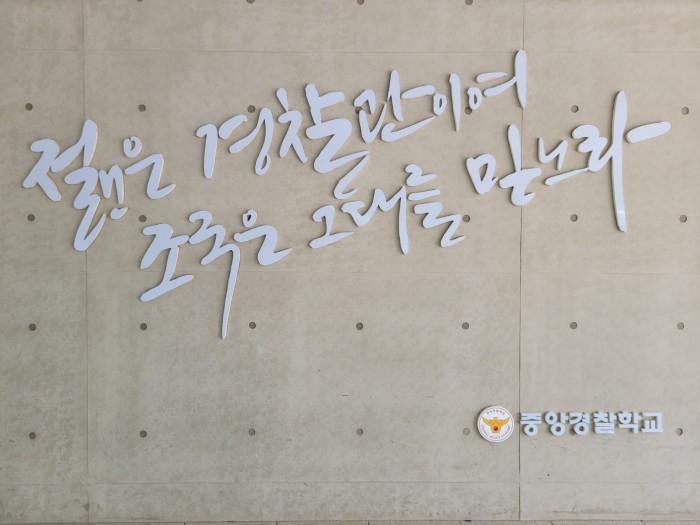 젊은 경찰관이여
조국은 그대를 믿노라
중앙경찰학교